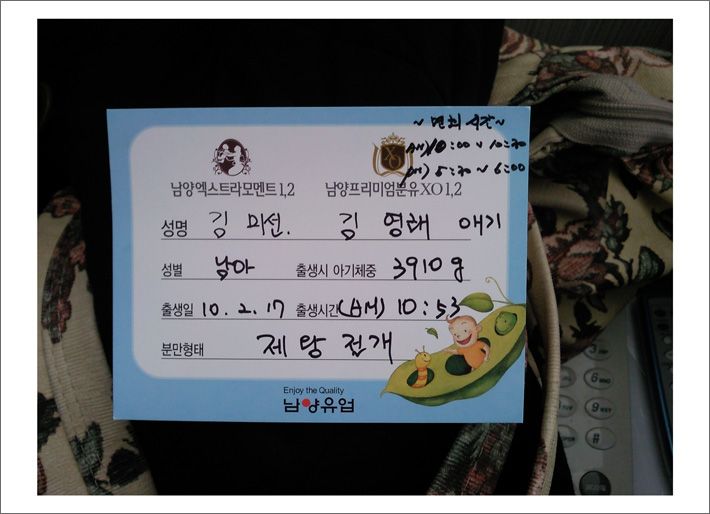 ~ 면회 시간~
AM) 10:00 ~ 10:30
PM) 5:30 ~ 6:00
XO
남양엑스트라모멘트1,2 남양프리미엄분유XO1,2
성명 김미선. 김영래 애기
성별 남아 출생시 아기체중 3910g
출생일 10.2.17 출생시간 (AM) 10:53
분만형태 제왕절개
Enjoy the Quality
남양유업
3
6
9